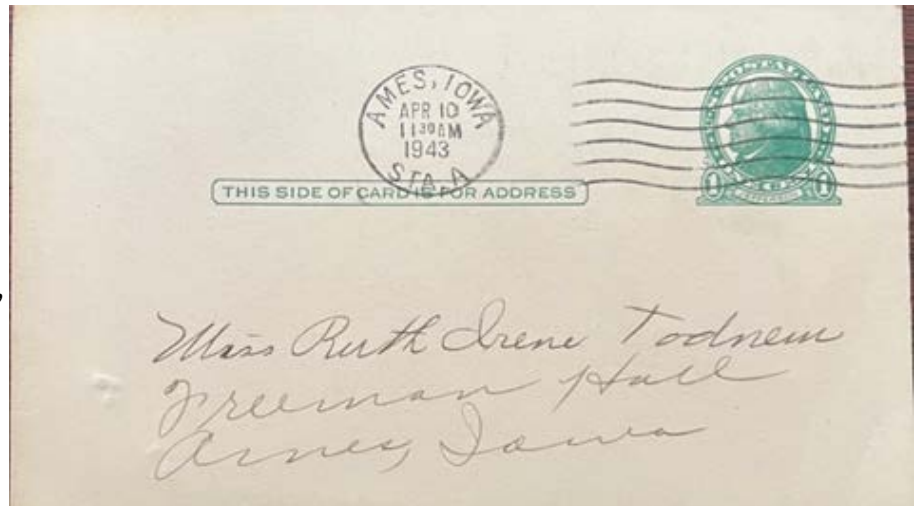 AMES, IOWA
APR 10
11 30 AM
1943
STA. A
THIS SIDE OF CARD IS FOR ADDRESS
1 1
JEFFERSON
Miss Ruth Irene Todnem
Freeman Hall
Ames, Iowa